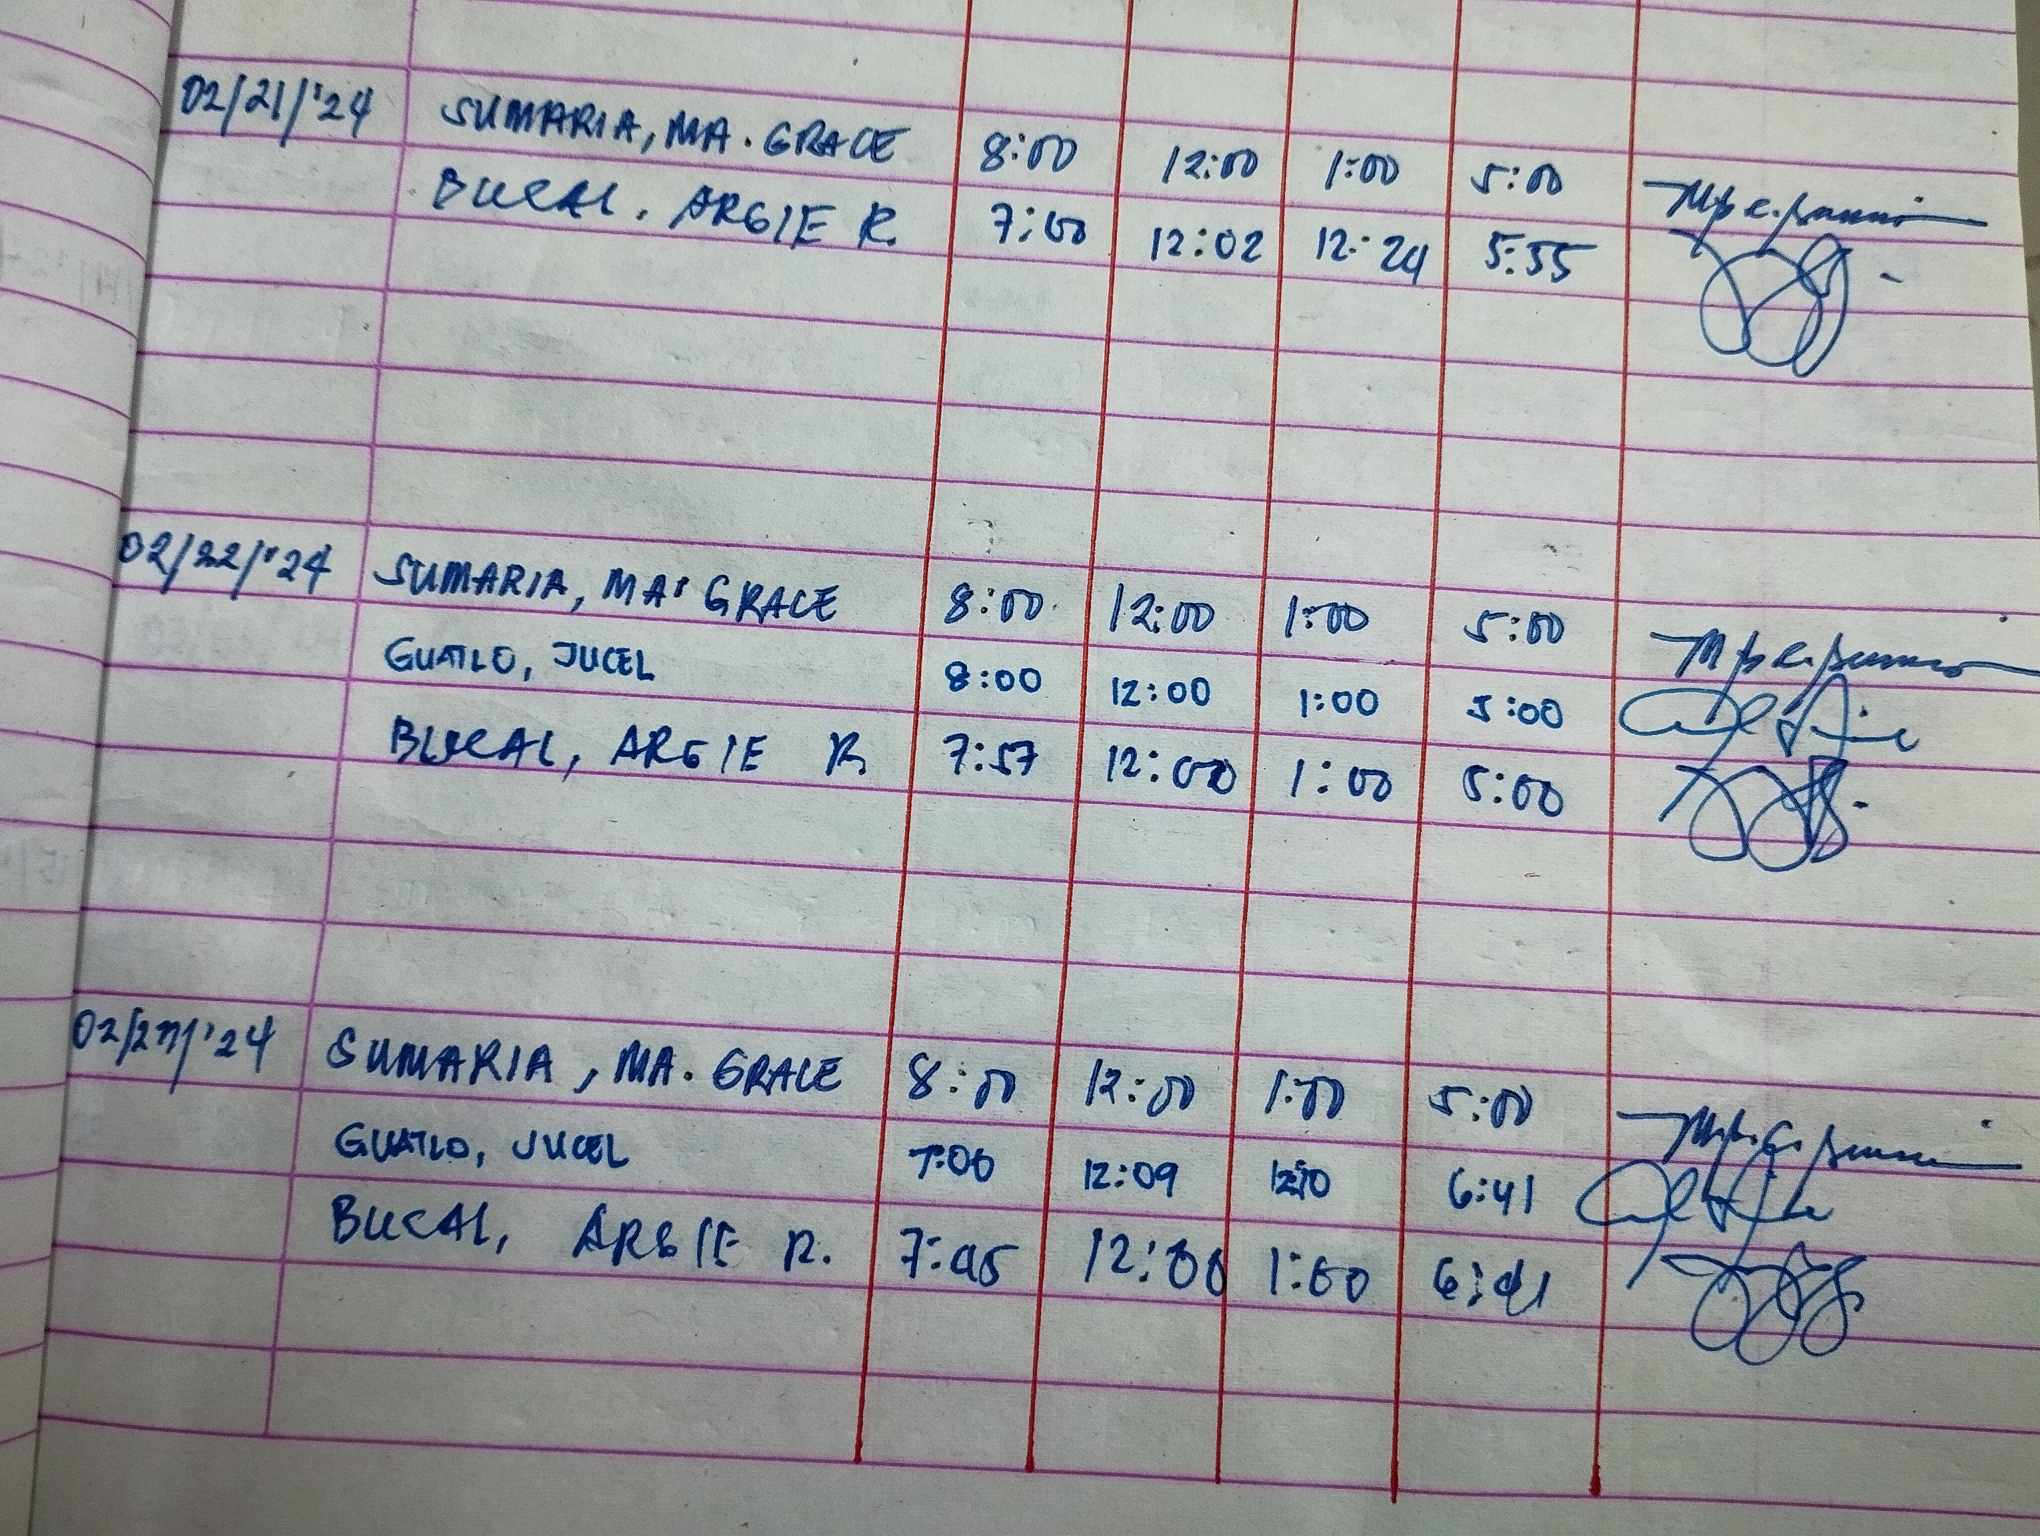 02/21/'24 SUMARIA, MA. GRACE 8:00 12:00 1:00 5:00
BUCAL, ARGIE R. 7:00 12:02 12:24 5:55
02/22/'24 SUMARIA, MA. GRACE 8:00 12:00 1:00 5:00
GUATLO, JUCEL 8:00 12:00 1:00 5:00
BUCAL, ARGIE R. 7:57 12:00 1:00 5:00
02/27/'24 SUMARIA, MA. GRACE 8:00 12:00 1:00 5:00
GUATLO, JUCEL 7:00 12:09 12:10 6:41
BUCAL, ARGIE R. 12:00 1:00 6:41